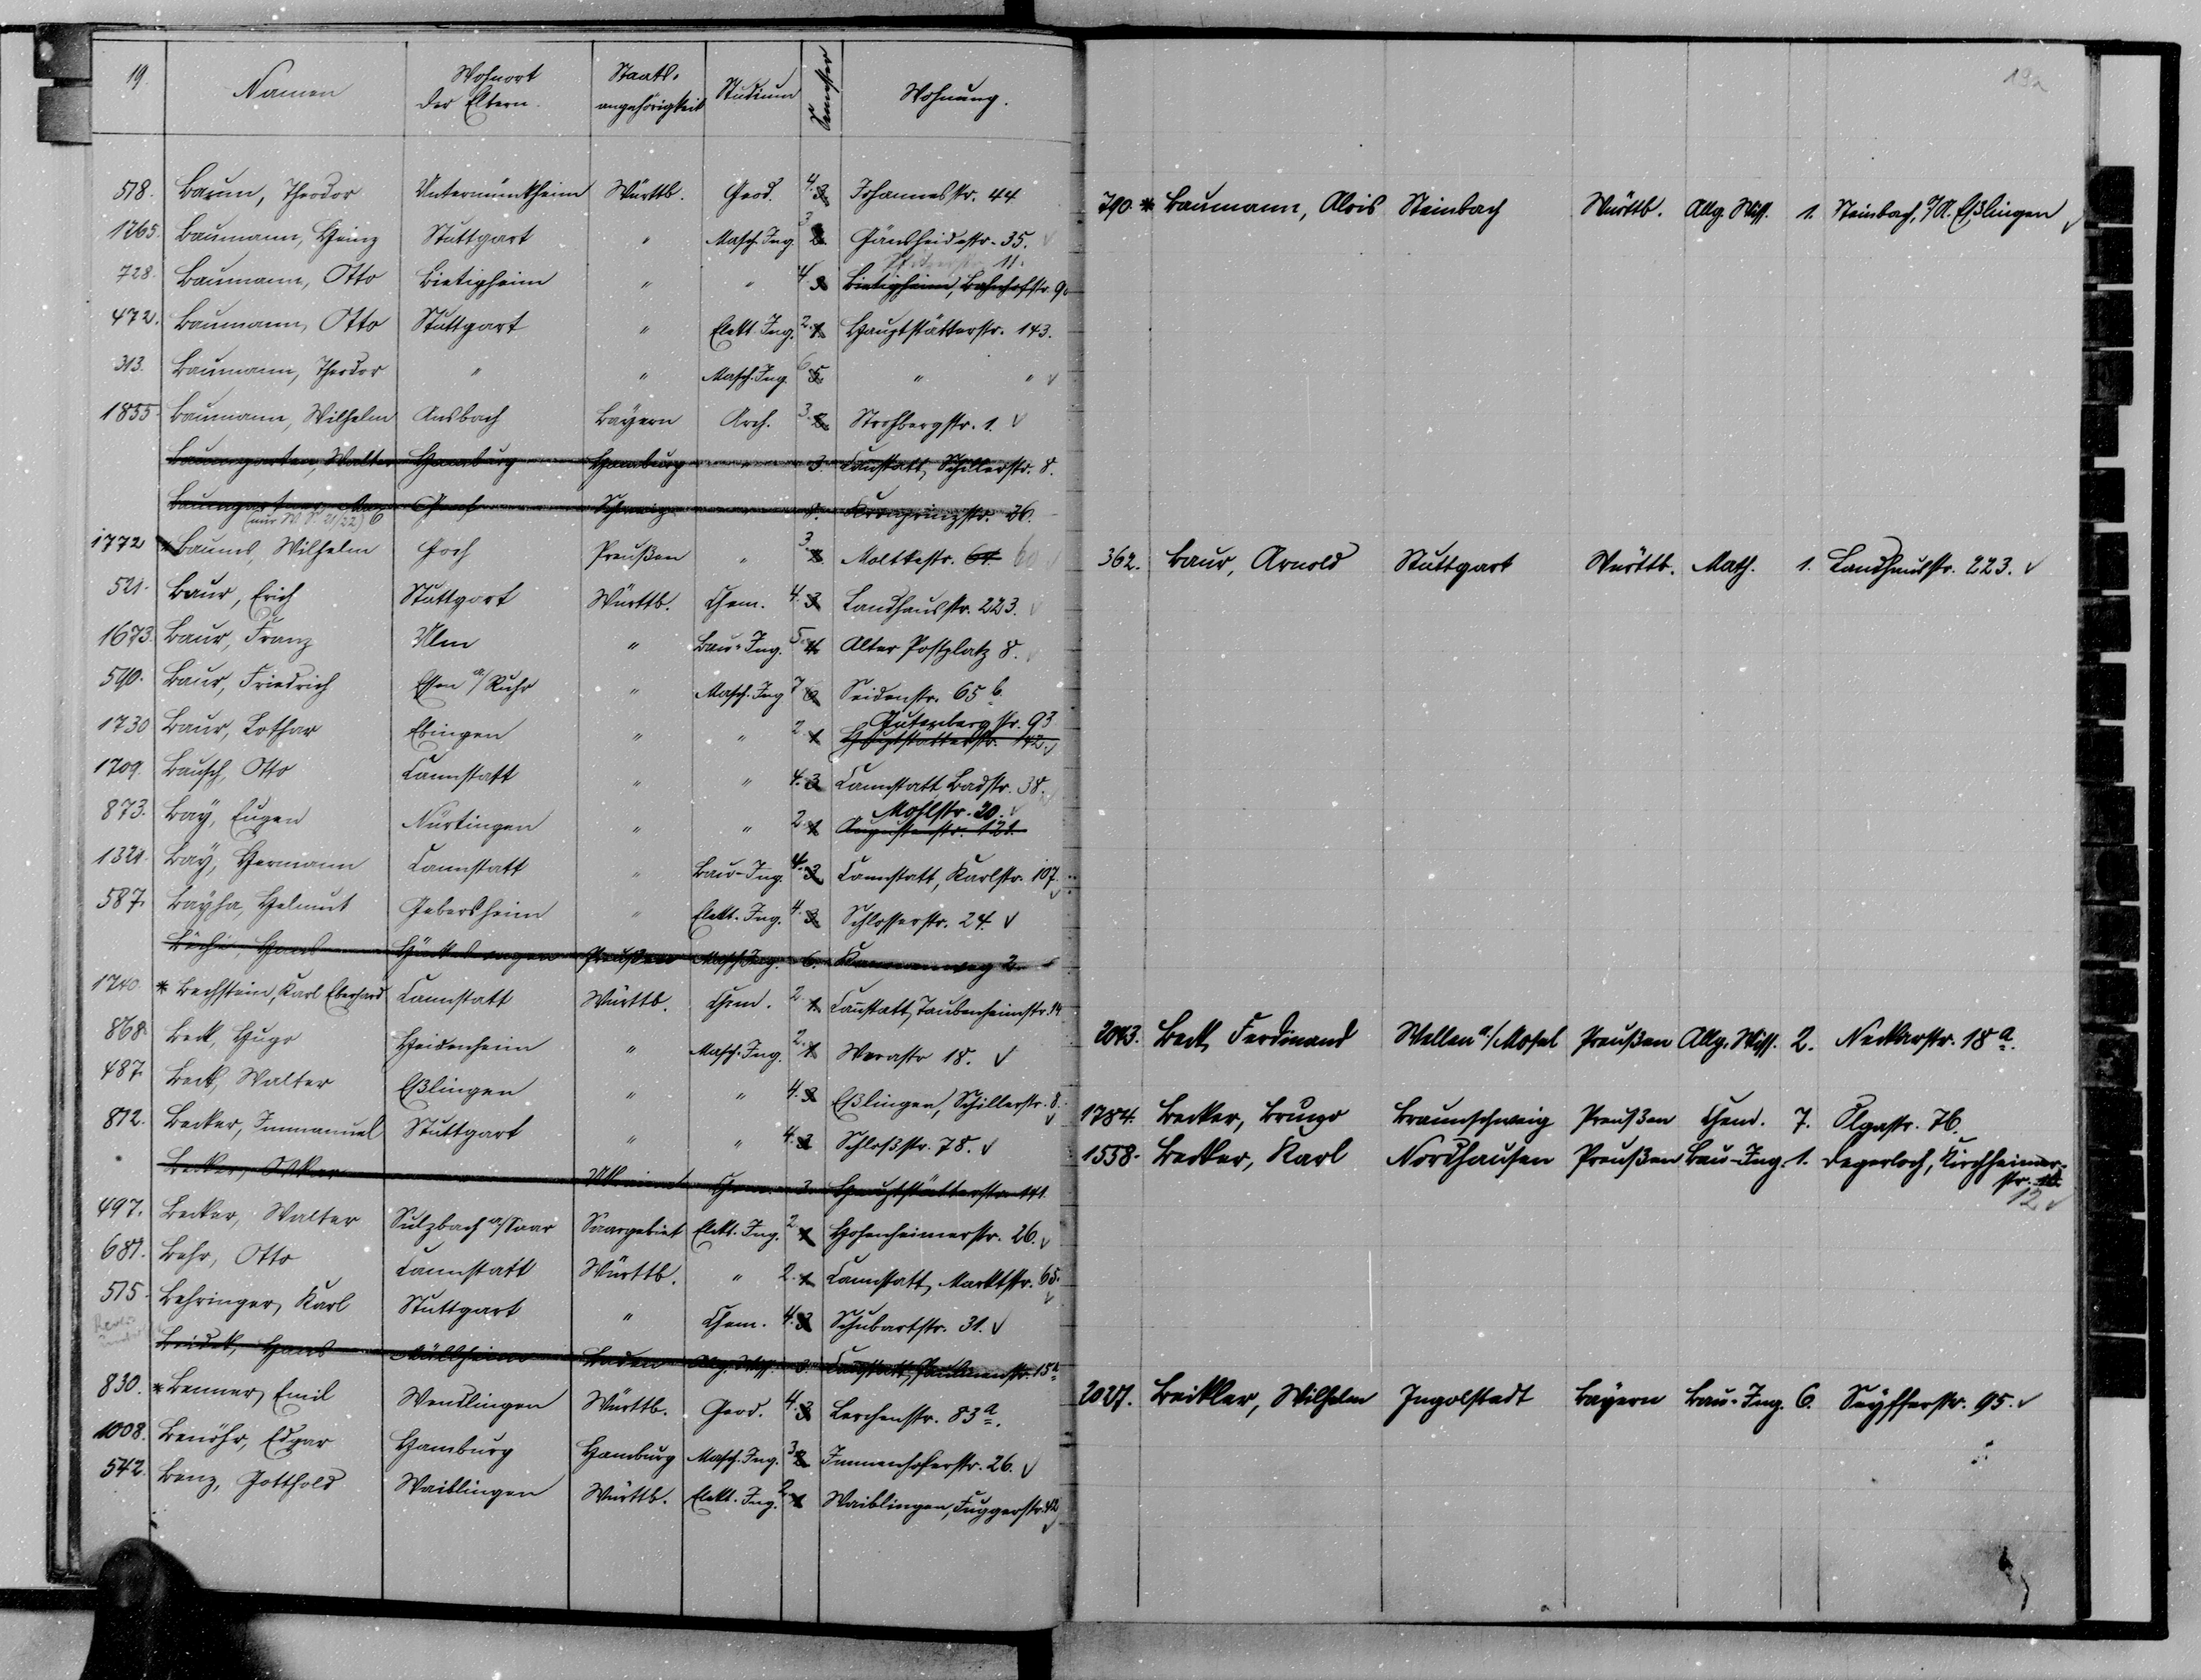 19. Namen Wohnort der Eltern. Staats-angehörigkeit Studium Semester Wohnung.
518. Baum, Theodor Untermünkheim Württb. Geod. 4. 3. Johannesstr. 44
1265. Baumann, Heinz Stuttgart " Masch. Ing. 3 2. Gänsheidestr. 35. ✓
11.
728. Baumann, Otto Bietigheim " " 4. 3. Bietigheim, Bahnhofstr. 9.
472. Baumann, Otto Stuttgart " Elekt. Ing. 2. 1. Hauptstätterstr. 143.
313. Baumann, Theodor " " Masch. Ing. 6 5. " " ✓
1855. Baumann, Wilhelm Ansbach Bayern Arch. 3. 2. Strohbergstr. 1. ✓
Baumgarten, Walter Hamburg Hamburg " 3. Cannstatt, Schillerstr. 8.
Baumgartner, Max Genf Schweiz 8. Kronprinzstr. 26.
(nur W. S. 21/22) 6
1772 * Baums, Wilhelm Goch Preußen " 3. 2. Moltkestr. 61. 60 ✓
521. Baur, Erich Stuttgart Württb. Chem. 4. 3. Landhausstr. 223. ✓
1673. Baur, Franz Ulm " Bau-Ing. 5. 4. Alter Postplatz 8. ✓
590. Baur, Friedrich Essen a/Ruhr " Masch. Ing 7 6. Seidenstr. 65 b.
Gutenbergstr. 93
1730 Baur, Lothar Ebingen " " 2. 1. Hauptstätterstr. 142. ✓
1709. Bausch, Otto Cannstatt " " 4. 3 Cannstatt, Badstr. 38. ✓
Mohlstr. 20. ✓
873. Bay, Eugen Nürtingen " " 2. 1. Augustenstr. 121.
1321. Bay, Hermann Cannstatt " Bau-Ing. 4. 3. Cannstatt, Karlstr. 107. ✓
587. Bayha, Helmut Gebersheim " Elekt. Ing. 4. 3. Schlosserstr. 24. ✓
Hans Preußen Masch Ing. 6. 2.
1740. * Bechstein, Karl Eberhard Cannstatt Württb. Chem. 2. 1. Cannstatt, Taubenheimstr. 14
868. Beck, Hugo Heidenheim " Masch. Ing. 2. 1. Werastr 18. ✓
487. Beck, Walter Eßlingen " " 4. 3 Eßlingen, Schillerstr. 8. ✓
812. Becker, Immanuel Stuttgart " " 4. 3 Schloßstr. 78. ✓
Becker, Oskar Chem. 3. Hauptstätterstr. 141.
497. Becker, Walter Sulzbach a/Saar Saargebiet Elekt. Ing. 2. 1. Hohenheimerstr. 26. ✓
681. Behr, Otto Cannstatt Württb. " 2. 1. Cannstatt, Marktstr. 65. ✓
515. Behringer, Karl Stuttgart " Chem. 4. 3. Schubartstr. 31. ✓
Hans Müllheim Baden Allg. Wiss. 3. Cannstatt, Paulinenstr. 15a
830. * Benner, Emil Wendlingen Württb. Geod. 4. 3 Lerchenstr. 83 a.
1008. Benöhr, Edgar Hamburg Hamburg Masch. Ing. 3. 2. Immenhoferstr. 26. ✓
542. Benz, Gotthold Waiblingen Württb. Elekt. Ing. 2. 1. Waiblingen, Fuggerstr. 42 ✓
19a
790. * Baumann, Alois Steinbach Württb. Allg. Wiss. 1. Steinbach, O/A. Eßlingen ✓
362. Baur, Arnold Stuttgart Württb. Math. 1. Landhausstr. 223. ✓
2043. Beck, Ferdinand Wellen a/Mosel Preußen Allg. Wiss. 2. Neckarstr. 18 a.
1784. Becker, Bruno Braunschweig Preußen Chem. 7. Olgastr. 76.
1558. Becker, Karl Nordhausen Preußen Bau-Ing. 1. Degerloch, Kirchheimer-
str. 12 ✓
2027. Beikler, Wilhelm Ingolstadt Bayern Bau-Ing. 6. Seyfferstr. 95. ✓